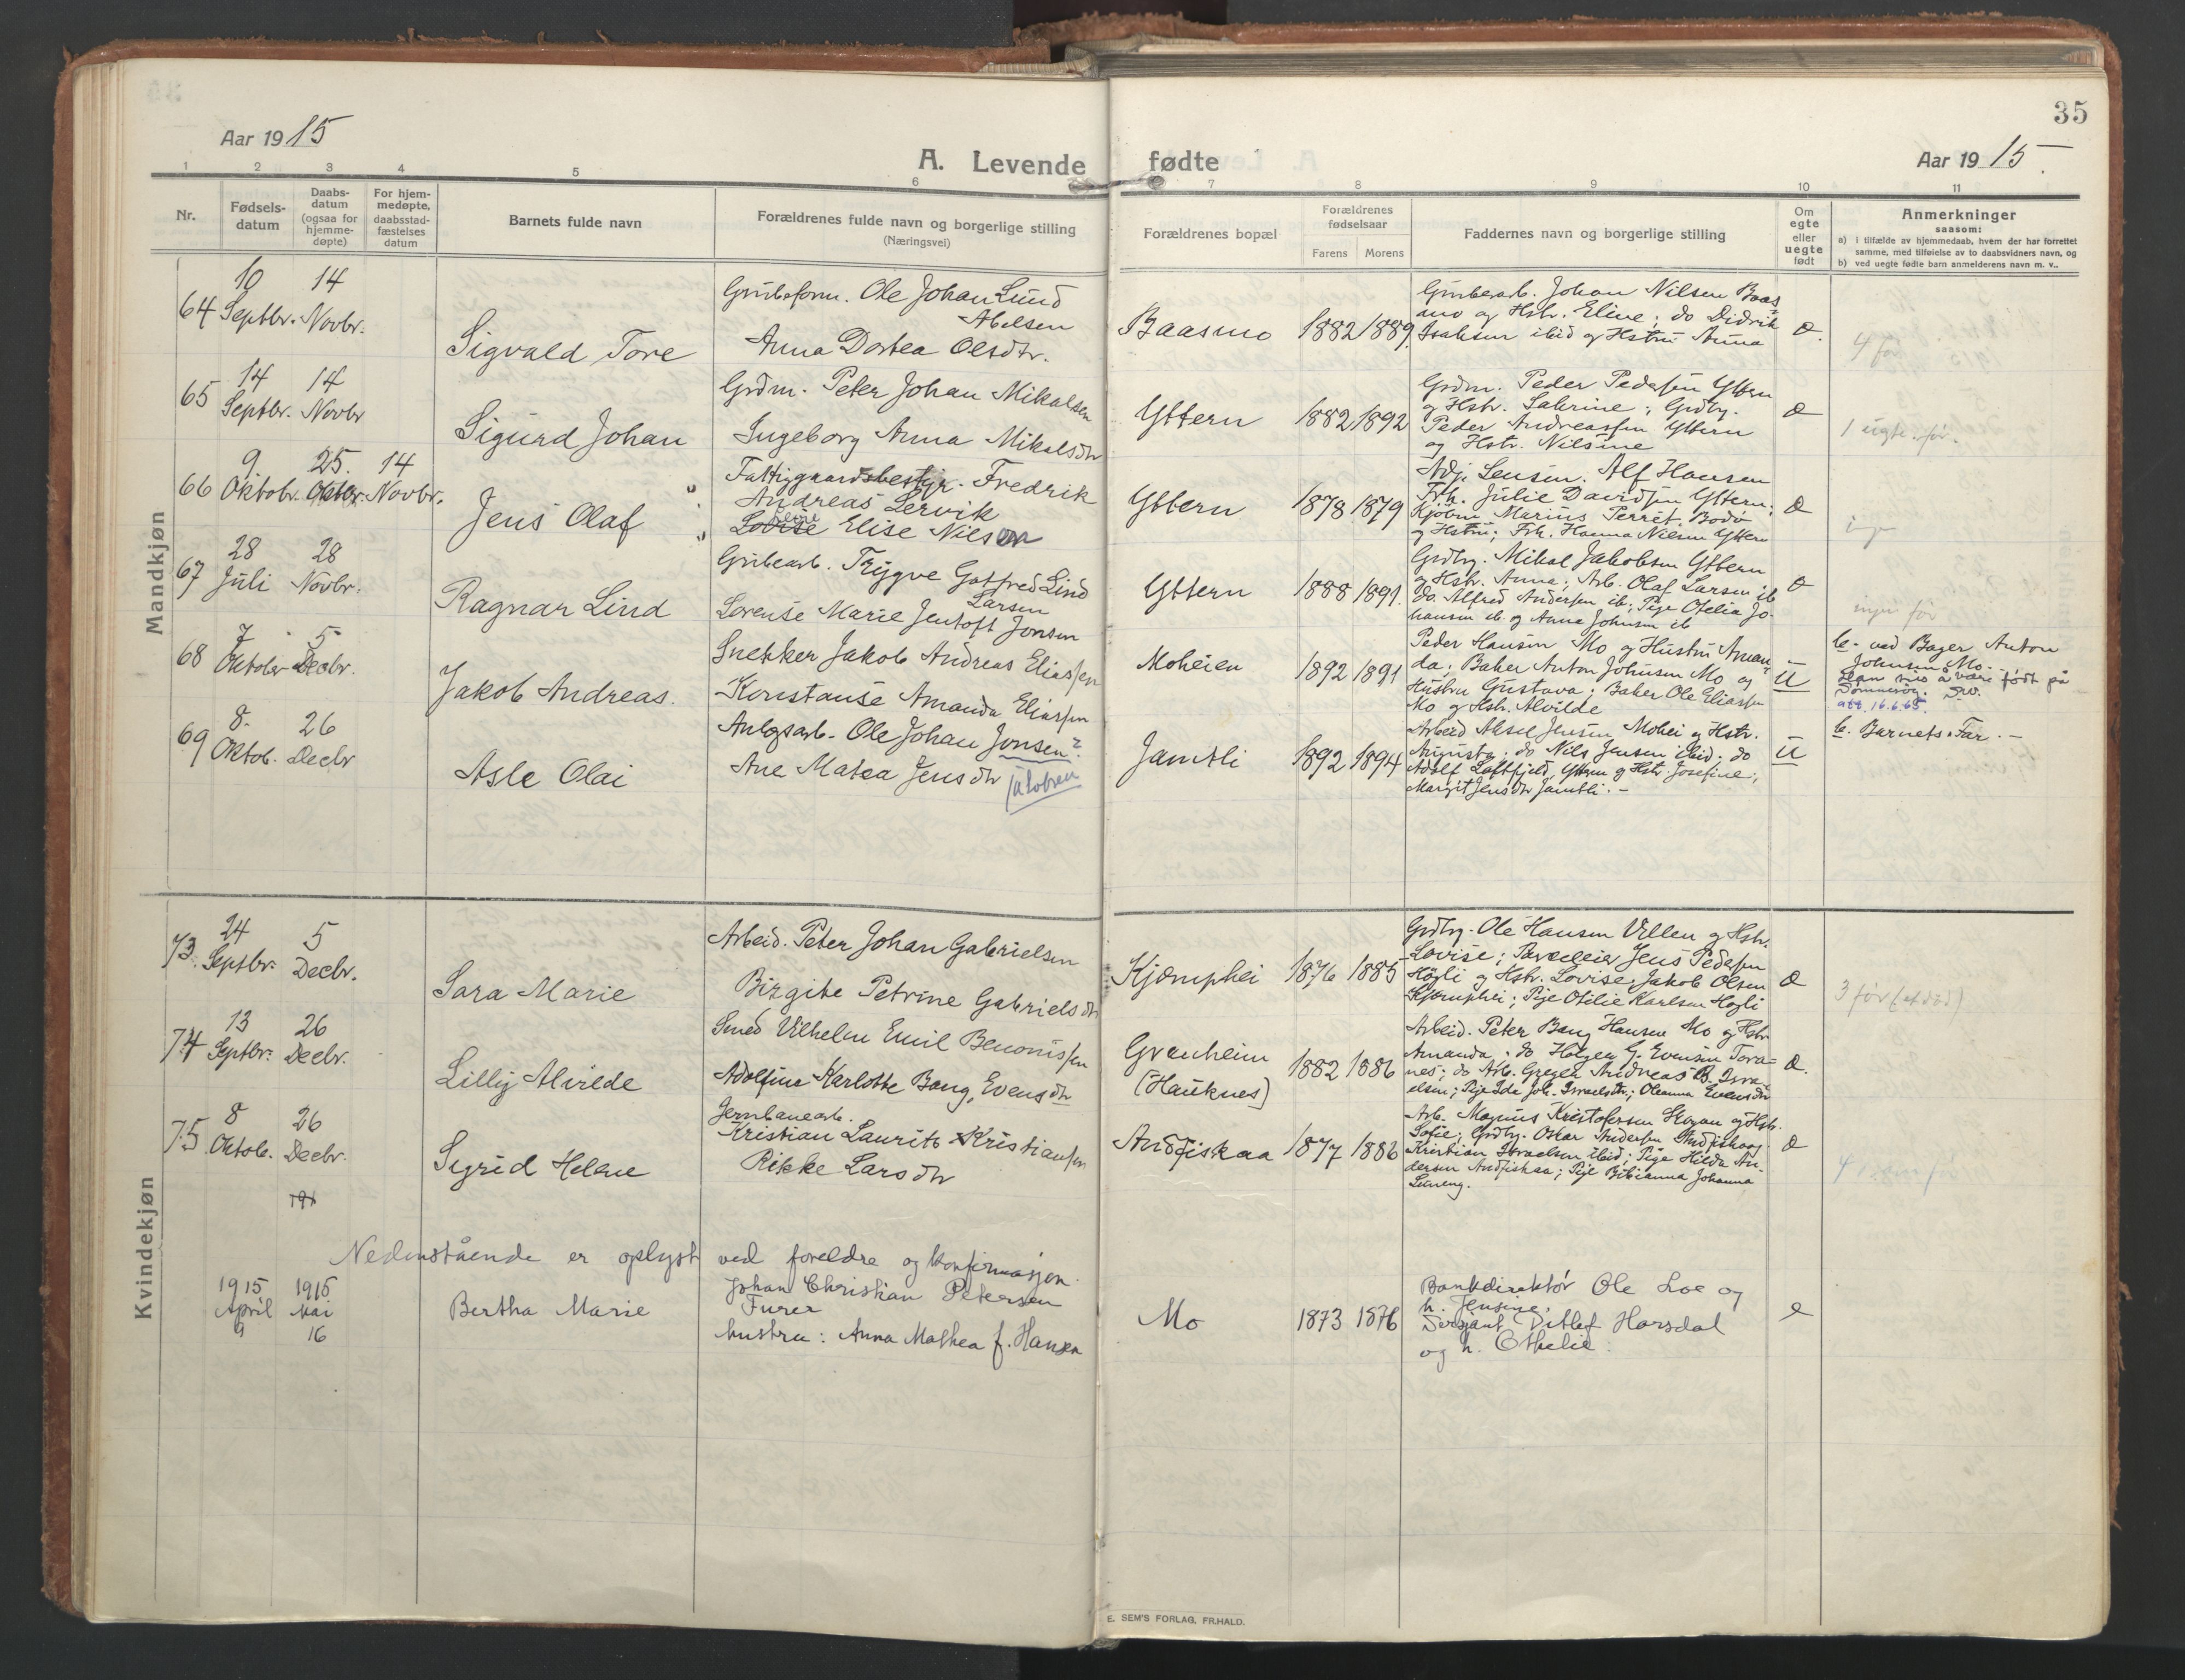 35
Aar 1915
A. Levende fødte
Aar 1915.
1 2 3 4 5 6 7 8 9 10 11
Nr.
Fødsels-
datum
Daabs-
datum
(ogsaa for
hjemme-
døpte)
For hjem-
medøpte,
daabsstad-
fæstelses
datum
Barnets fulde navn
Forældrenes fulde navn og borgerlige stilling
(Næringsvei)
Forældrenes bopæl
Forældrenes
fødselsaar
Farens Morens
Faddernes navn og borgerlige stilling
Om
egte
eller
uegte
født
Anmerkninger
saasom:
a) i tilfælde av hjemmedaab, hvem der har forrettet
samme, med tilføielse av to daabsvidners navn, og
b) ved uegte fødte barn anmelderens navn m. v..
Mandkjøn
64
10
Septbr.
14
Novbr.
Sigvald Tore
Grubeform. Ole Johan Lund
Abelsen
Anna Dortea Olsdtr.
Baasmo
1882 1889.
Grubearb. Johan Nilsen Baas-
mo og Hstr. Eline; do Didrik
Isaksen ibid og Hstru Anna
e.
4 før
65
14
Septbr.
14
Novbr
Sigurd Johan
Grdm. Peter Johan Mikalsen
Ingeborg Anna Mikalsdtr
Yttern
1882 1892
Grdm. Peder Pedersen Yttern
og Hstr. Sabrine; Grdbr.
Peder Andreassen Yttern
og Hstr. Nilsine
e
1 uegte før.
66
9.
Oktobr.
25.
Oktbr.
14
Novbr.
Jens Olaf
Fattiggaardsbestyr. Fredrik
Andreas Lervik
Lovise Elise Nilsen
Yttern
1878 1879
Adj. Lensm. Alf Hansen
Frk. Julie Davidsen Yttern;
Kjøbm Marius Perret Bodø
og Hstru; Frk. Hanna Nilsen Yttern
e
ingen
67
28
Juli
28
Novbr.
Ragnar Lind
Grubearb. Trygve Gotfred Lind
Larsen
Lorense Marie Jentoft Jonsen
Yttern
1888 1891.
Grdbr. Mikal Jakobsen Yttern
og Hstr. Anna; Arb. Olaf Larsen ib
do. Alfred Andersen ib; Pige Ofelia Jo-
hansen ib. og Anna Johnsen ib
e
ingen før
68
7
Oktober
5
Decbr.
Jakob Andreas.
Snekker Jakob Andreas Eliassen
Konstanse Amanda Eliassen
Moheien
1892 1891
Peder Hansen Mo og Hustru Aman-
da; Baker Anton Johnsen Mo og
Hustru Gustava; Baker Ole Eliassen
Mo og Hstr. Alvilde
U
b- ved Bager Anton
Johnsen, Mo.-
være født på
att. 16.6.65.
69
8.
Oktob.
26
Decbr
Asle Olai
Anlegsarb. Ole Johan Jonsen?
Ane Matea Jensdtr
Jakobsen
Jamtli
1892 1894
Arbeid Aksel Jensen Mohei og Hstr.
Augusta; do Nils Jensen ibid; do
Adolf Loftfjeld, Yttern og Hstr. Josefine;
Margit Jensdtr Jamtli. -
U
b. Barnets Far. -
Kvindekjøn
73.
24
Septbr.
5
Decbr.
Sara Marie
Arbeid. Peter Johan Gabrielsen
Birgite Petrine Gabrielsdtr
Kjæmphei
1876 1885
Grdbr. Ole Hansen Villen og Hstr.
Lovise; Parceleier Jens Pedersen
Høgli og Hstr. Lovise; Jakob Olsen
Kjæmphei; Pige Otilie Karlsen Høgli
e
3 før (et død)
74
13
Septbr.
26
Decbr.
Lilly Alvilde
Smed Vilhelm Emil Benonissen
Adolfine Karlotte Bang, Evensdtr
Grønheim
(Hauknes)
1882 1886
Arbeid. Peter Bang Hansen Mo og Hstr
Amanda; do Holger G. Evensen Tora-
nes; do Arb. Greger Andreas B. Isra-
elsen; Pige Ida Joh. Israelsdtr; Oleanna Evensdtr
e.
75.
8
Oktob.
26
Decbr.
Sigrid Helene
Jernbanearb.
Kristian Laurits Kristiansen
Rikke Larsdtr
Andfiskaa
1877 1886
Arb. Magnus Kristofersen Skogan og Hstr.
Sofie; Grdbr. Oskar Andersen Andfiskaag
Kristian Israelsen ibid; Pige Hilda An-
dersen Andfiskaa; Pige Bibianna Johanna
Luneng.
e
Nedenstående er oplyst ved foreldre og konfirmasjon.
1915
April
9
1915
Mai
16
Bertha Marie
Johan Christian Petersen
Furer
hustru: Anna Mathea f. Hansen
Mo
1873 1876
Bankdirektør Ole Loe og
h. Jensine.
Sersjant Ditlef Horsdal
og h. Othelie.
e
E. SEM'S FORLAG, FR.HALD.